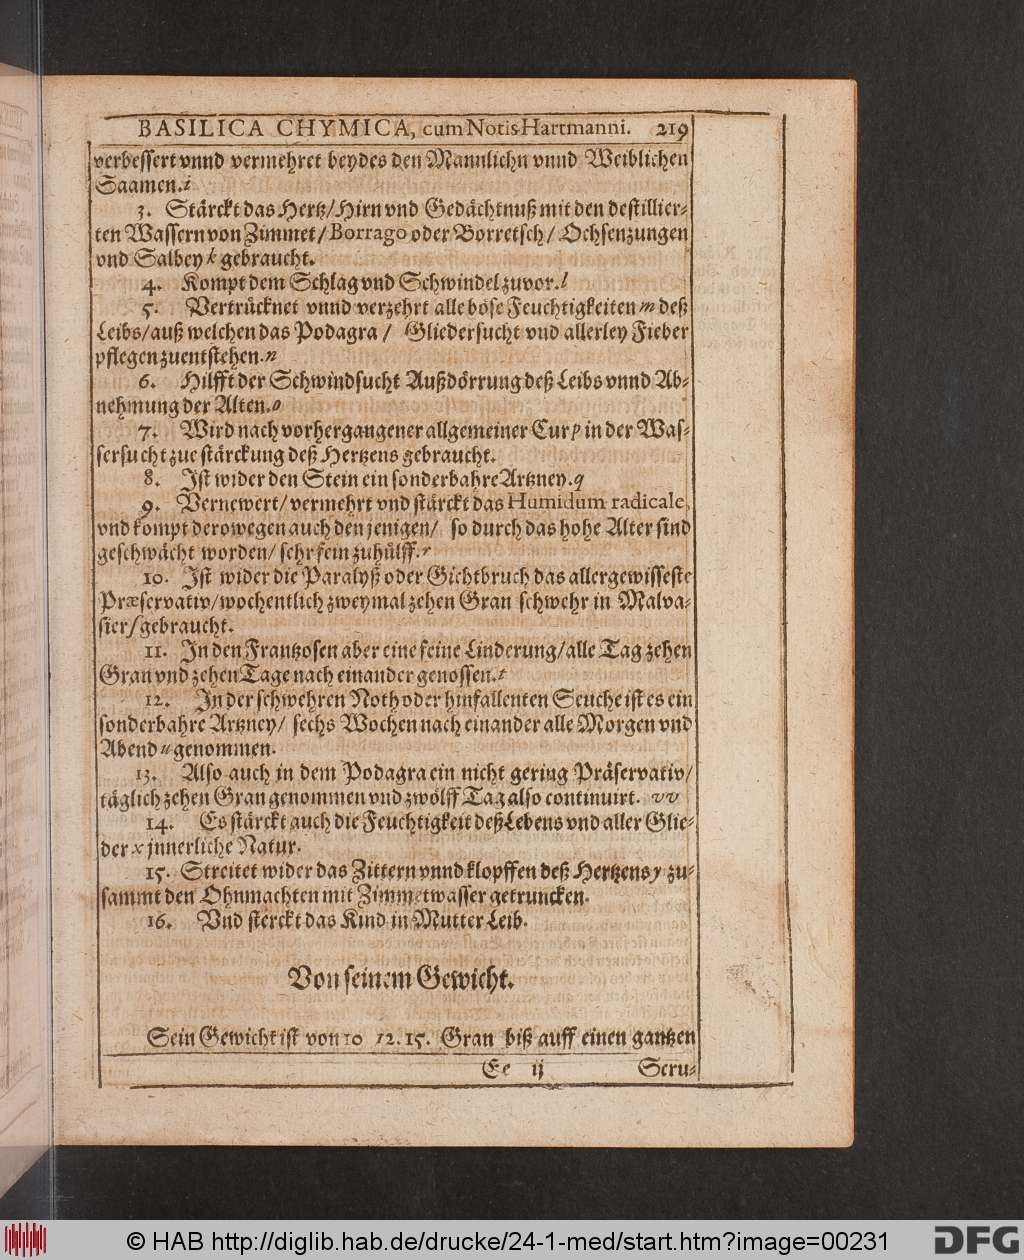 BASILICA CHYMICA, cum Notis Hartmanni. 219
verbessert vnnd vermehret beydes den Mannlichn vnnd Weiblichen
Saamen.i
3. Stärckt das Hertz/Hirn vnd Gedächtnuß mit den destillier-
ten Wassern von Zimmet/Borrago oder Borretsch/ Ochsenzungen
vnd Salbey k gebraucht.
4. Kompt dem Schlag vnd Schwindel zuvor.l
5. Vertrücknet vnnd verzehrt alle böse Feuchtigkeiten m deß
Leibs/auß welchen das Podagra/ Gliedersucht vnd allerley Fieber
pflegen zuentstehen.n
6. Hilfft der Schwindsucht Außdörrung deß Leibs vnnd Ab-
nehmung der Alten.o
7. Wird nach vorhergangener allgemeiner Cur p in der Was-
sersucht zue stärckung deß Hertzens gebraucht.
8. Ist wider den Stein ein sonderbahre Artzney.q
9. Vernewert/vermehrt vnd stärckt das Humidum radicale,
vnd kompt derowegen auch den jenigen/ so durch das hohe Alter sind
geschwächt worden/sehr fein zuhülff.r
10. Ist wider die Paralyß oder Gichtbruch das allergewisseste
Præservativ/wochentlich zweymal zehen Gran schwehr in Malva-
sier s gebraucht.
11. In den Frantzosen aber eine feine Linderung/alle Tag zehen
Gran vnd zehen Tage nach einander genossen.t
12. In der schwehren Noth oder hinfallenten Seuche ist es ein
sonderbahre Artzney/ sechs Wochen nach einander alle Morgen vnd
Abend u genommen.
13. Also auch in dem Podagra ein nicht gering Präservativ/
täglich zehen Gran genommen vnd zwölff Tag also continuirt. vv
14. Es stärckt auch die Feuchtigkeit deß Lebens vnd aller Glie-
der x jnnerliche Natur.
15. Streitet wider das Zittern vnnd klopffen deß Hertzens y zu-
sammt den Ohnmachten mit Zimmetwasser getruncken.
16. Vnd sterckt das Kind in Mutter Leib.
Von seinem Gewicht.
Sein Gewicht ist von 10 12. 15. Gran biß auff einen gantzen
Ee ij Scru-
© HAB http://diglib.hab.de/drucke/24-1-med/start.htm?image=00231
DFG